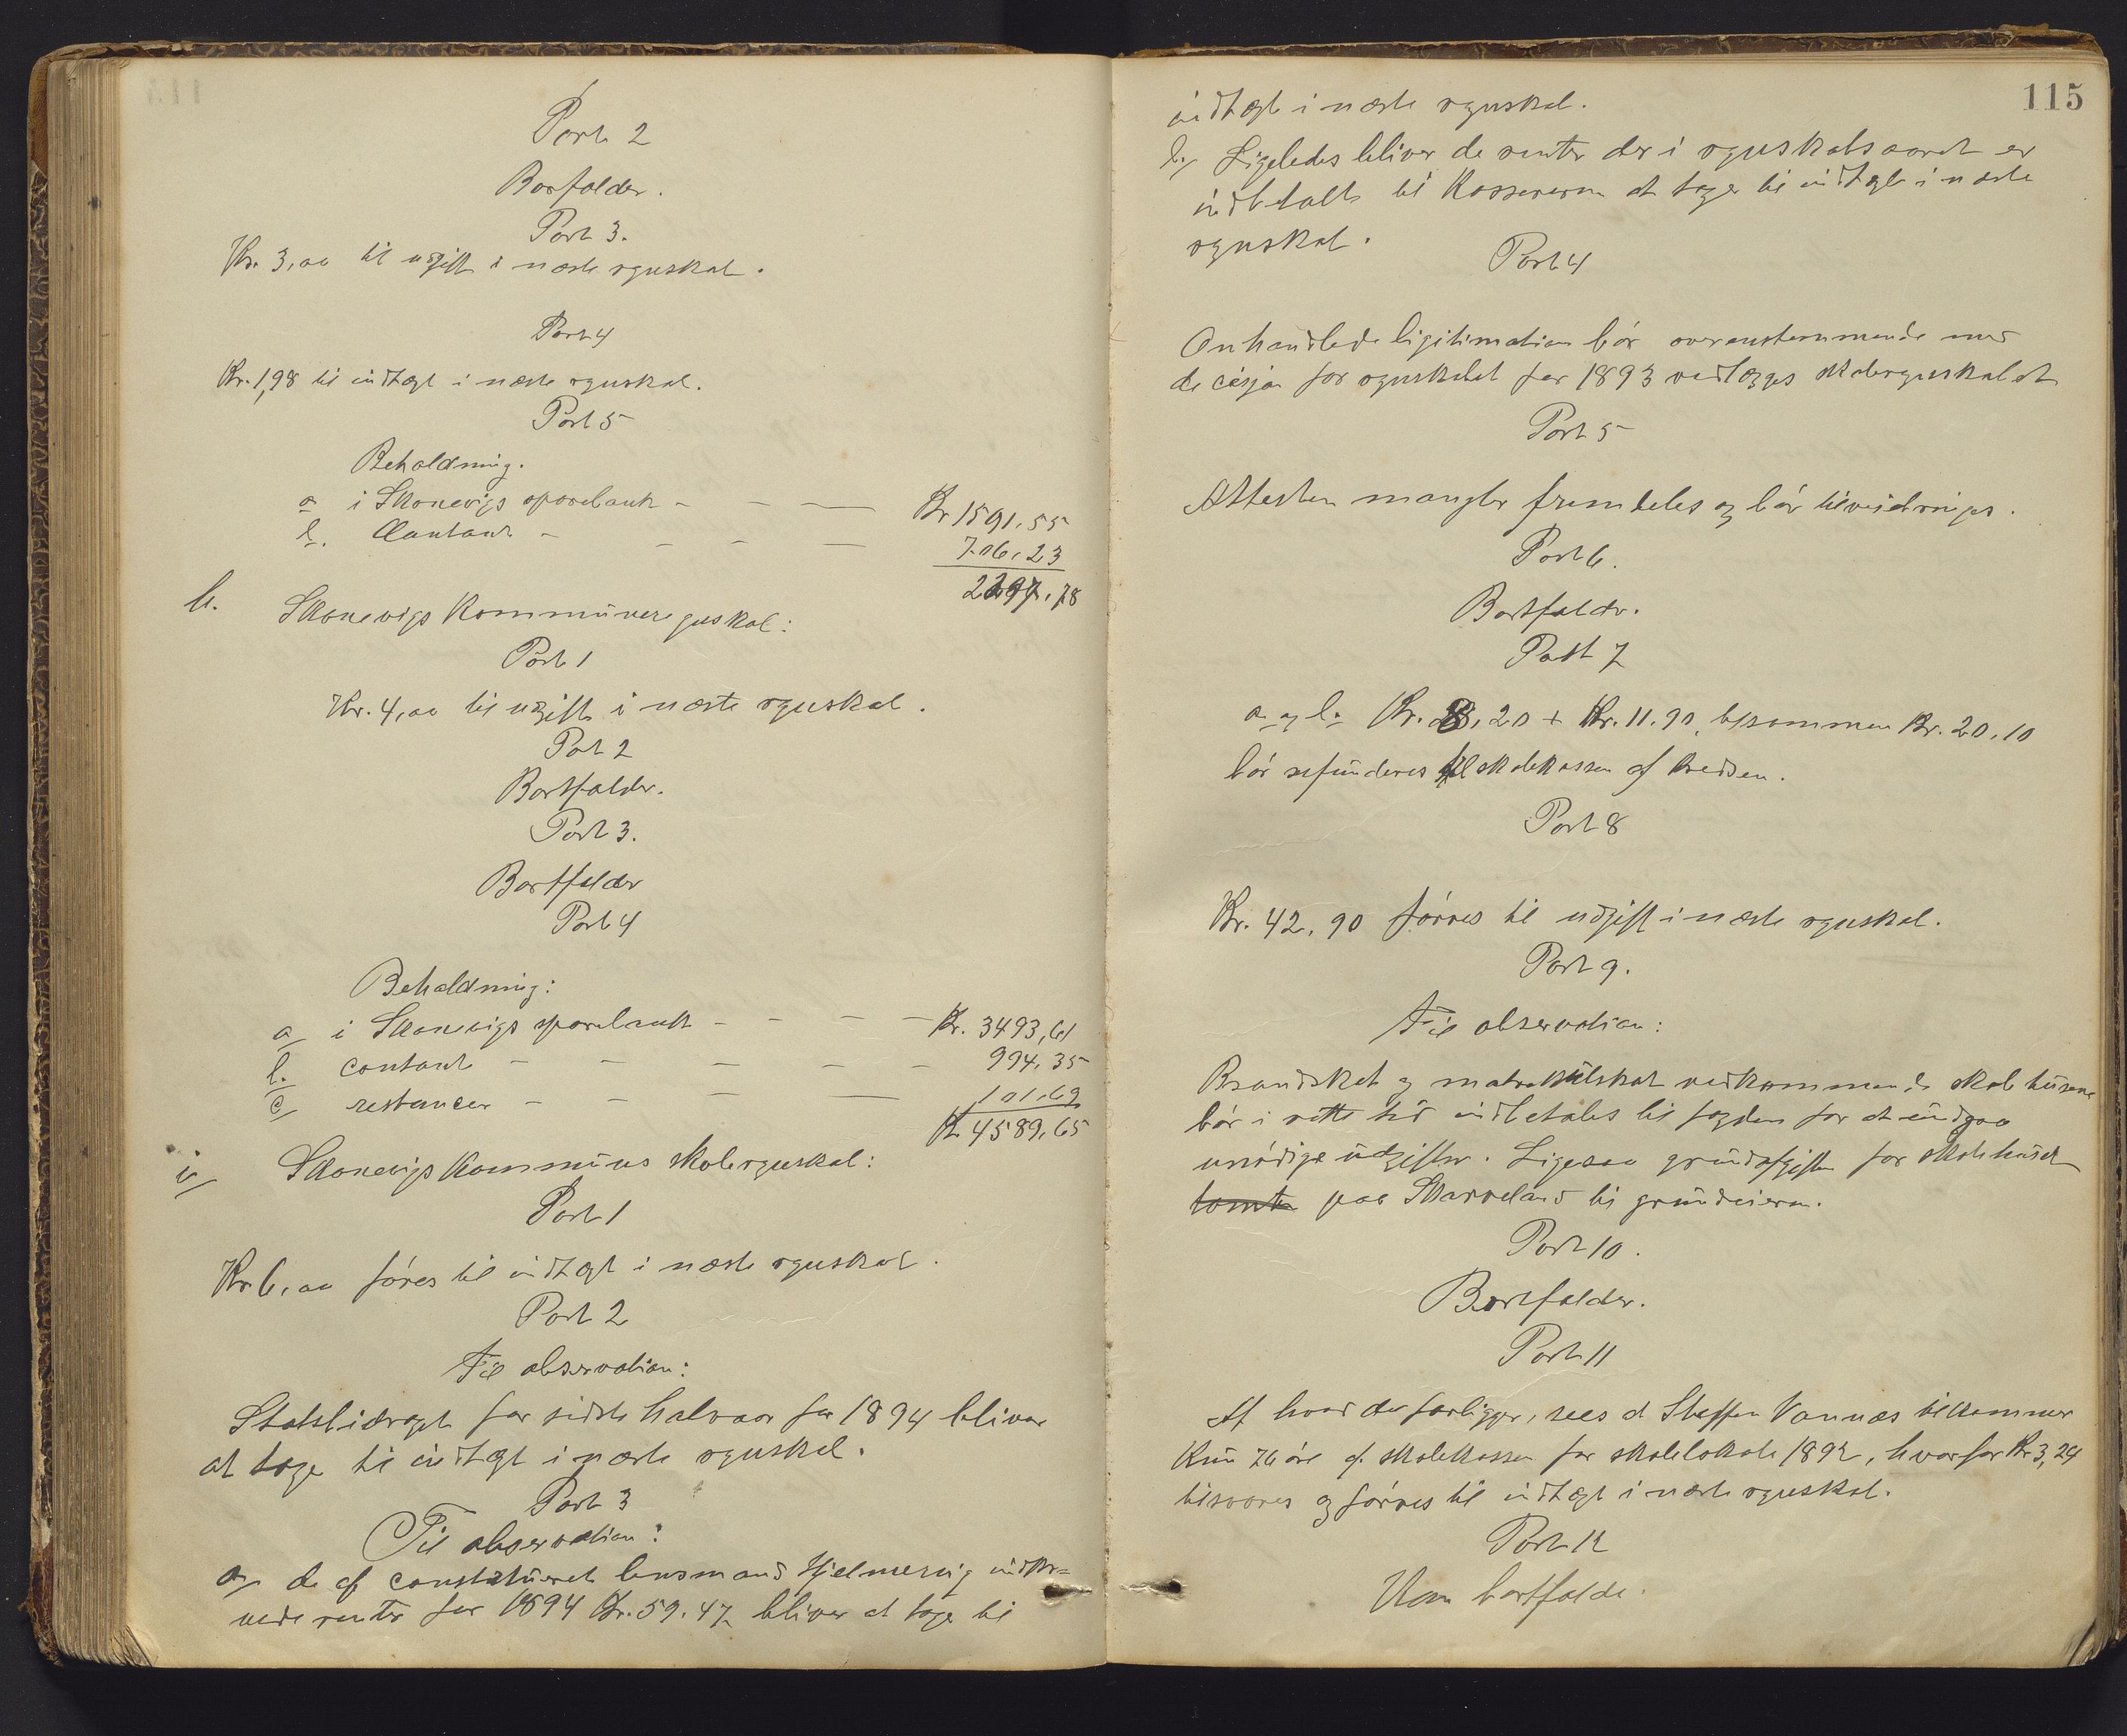 Post 2
Borfalder.
Post 3.
Kr. 3,00 til udgift i næste rgnskab.
Post 4
Kr. 1,98 til indtægt i næste rgnskab.
Post 5
Beholdning.
a i Skonevigs sparebank - - — Kr 1591,55
b. Contant - - - — 706,23
2297,78
h. Skonevigs Kommuneregnskab:
Post 1
Kr. 4,00 til udgift i næste rgnskab.
Post 2
Bortfalder.
Post 3.
Bortfalder
Post 4
Beholdning:
a/ i Skonevigs sparebank - - - - Kr. 3493,61
b. contant - - - - - 994,35
c/ restancer - - - — 101,69
Kr 4589,65
i/ Skonevigs Kommunes skolergnskab:
Post 1
Kr. 6,00 føres til indtægt i næste rgnskab.
Post 2
Til observation:
Statsbidraget for sidste halvaar for 1894 bliver
at tage til indtægt i næste rgnskab.
Post 3
Til observation:
a/ de af constitueret lensmand Hjelmervig indkr=
vede renter for 1894 Kr. 59.47 bliver at tage til
115
indtægt i næste rgnskab.
b/ Ligeledes bliver de renter der i rgnskabsaaret er
indbetalt til Kassereren at tage til indtægt i næste
rgnskab.
Post 4
Omhandlede ligitimation bør overenstemmende med
decisjon for rgnskabet for 1893 vedlægges skolergnskabet
Post 5
Attesten mangler fremdeles og bør tilveiebringes.
Post 6.
Bortfalder.
Post 7
a og b. Kr. 8,20 + Kr. 11.90, tilsammen Kr. 20,10
bør refunderes til skolekassen af kredsen.
Post 8
Kr. 42,90 førres til udgift i næste rgnskab.
Post 9.
Til observation:
Brandskat og matrikulskat vedkommende skolehusene
bør i rette tid indbetales til fogden for at undgaa
unødige udgifter. Ligesaa grundafgiften for skolehuset
tomte paa Skarveland til grundeieren.
Post 10.
Bortfalder.
Post 11
Af hvad der forligger, sees at Steffen Vannæs tilkommer
kun 76 øre af skolekassen for skolelokale 1892, hvorfor Kr 3,24
tilsvares og førres til indtægt i næste rgnskab.
Post 12
Kan bortfalde.